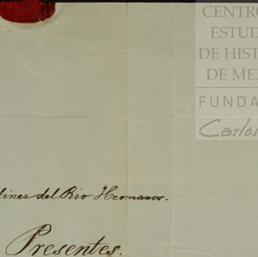 CENTRO
ESTUD
DE HIST
DE ME
FUNDA
Carlos
lines del Rio Hermanos.
Presentes.